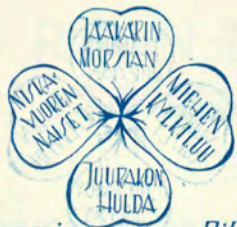 JÄÄKÄRIN
MORSIAN
NISKA-
VUOREN
NAISET
MIEHEN
KYLKILUU
JUURAKON
HULDA